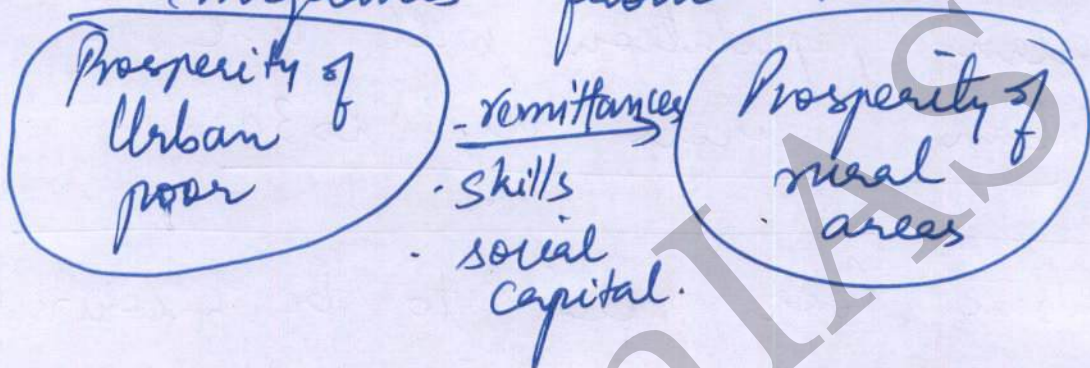 Prosperity of
Urban
poor
- remittances
. skills
. social
capital.
Prosperity of
rural
areas
IAS